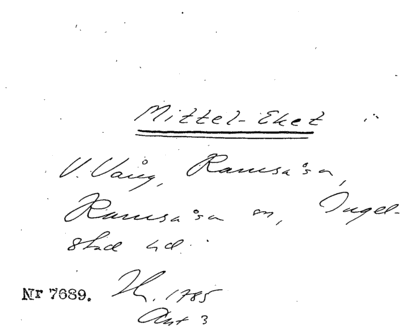 Mittel-Eket
V. Vång, Ramsåsa,
Ramsåsa sn, Ingel-
stad hd.
Nr 7689. H. 1785
Akt 3